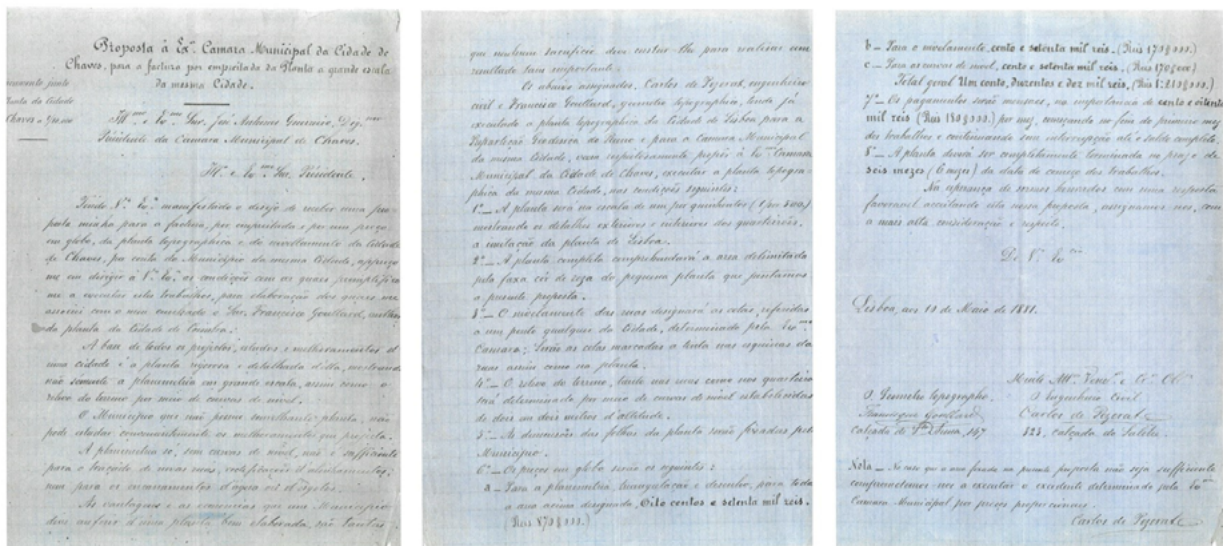 Proposta à Exª. Camara Municipal da Cidade de
Chaves, para a factura por empreitada da Planta a grande escala
da mesma Cidade.
Planta da Cidade
Chaves
Illmo e Exmo Snr. José Antunes Guerreiro, Dig.mo
Presidente da Câmara Municipal de Chaves.
Illmo e Exmo Snr. Presidente.
Tendo Vª Exª manifestado o desejo de receber uma pro-
posta minha para a factura, por empreitada e por um preço
em globo, da planta topographica e do nivellamento da Cidade
de Chaves, por conta do Municipio da mesma Cidade,
me em dirigir à Vª Exª as condições com as quaes
me a executar estes trabalhos, para elaboração dos quaes me
associei com o meu cunhado o Snr. Francisco Goullard,
da planta da Cidade de Coimbra.
A base de todos os projectos, estudos e melhoramentos d'
uma cidade é a planta rigorosa e detalhada d'ella, mostrando
não somente a planimetria em grande escala, assim como o
relevo do terreno por meio de curvas de nivel.
O Municipio que não possue semelhante planta, não
pode estudar convenientemente os melhoramentos que projecta.
A planimetria só, sem curvas de nivel, não é sufficiente
para o traçado de novas ruas, rectificação d'alinhamentos,
nem para os encanamentos d'agua ou d'esgotos.
As vantagens e as economias que um Municipio
deve auferir d'uma planta bem elaborada, são tantas
que nenhum sacrificio deve custar-lhe para realizar um
resultado tam importante.
Os abaixo assignados, Carlos de Pezerat, engenheiro
civil e Francisco Goullard, geometra topographico, tendo já
executado a planta topographica da Cidade de Lisboa para a
Repartição Predial do Reino e para a Camara Municipal
da mesma Cidade, vem propôr à Exma Camara
Municipal da Cidade de Chaves, executar a planta topogra-
phica da mesma Cidade, nas condições seguintes:
1ª_ A planta será na escala de um por quinhentos (1 por 500)
mostrando os detalhes exteriores e interiores dos quarteirões,
a imitação da planta de Lisboa.
2ª_ A planta completa comprehenderá a area delimitada
pela faxa côr de roza da pequena planta que juntamos
a presente proposta.
3ª_ O nivellamento das ruas designará as cotas, referidas
a um ponto qualquer da Cidade, determinado pela Exma
Camara; Serão as cotas marcadas a tinta nas esquinas das
ruas assim como na planta.
4ª_ O relevo do terreno, tanto nas ruas como nos quarteirões
será determinado por meio de curvas de nivel estabelecidas
de dois em dois metros d'altitude.
5ª_ As dimensões das folhas da planta serão fixadas pelo
Municipio.
6ª_ Os preços em globo serão os seguintes:
a_ Para a planimetria, triangulação e desenho, para toda
a area acima designada, Oito centos e setenta mil reis.
(Reis 870$000.)
b_ Para o nivelamento, cento e setenta mil reis. (Reis 170$000.)
c_ Para as curvas de nivel, cento e setenta mil reis. (Reis 170$000)
Total geral Um conto, Duzentos e dez mil reis. (Reis 1:210$000.)
7ª_ Os pagamentos serão mensaes, na importancia de cento e oitenta
mil reis (Reis 180$000.) por mez, começando no fim do primeiro mez
dos trabalhos e continuando sem interrupção até saldo completo.
8ª_ A planta deverá ser completamente terminada no prazo de
seis mezes (6 mezes) da data do começo dos trabalhos.
Na esperança de sermos honrados com uma resposta
favoravel acceitando esta nossa proposta, assignamo-nos, com
a mais alta consideração e respeito.
De Vª Exia
Lisboa, aos 10 de Maio de 1881.
Muito Attos Venres e Cros Obros
O Geometra topographo. O Engenheiro Civil
Francisque Goullard Carlos de Pezerat
Calçada de 167 323, calçada do Salitre.
Nota_ No caso que a area fixada na presente proposta não seja sufficiente
compromettemo-nos a executar o excedente determinado pela Exma
Camara Municipal por preços proporcionaes.
Carlos de Pezerat